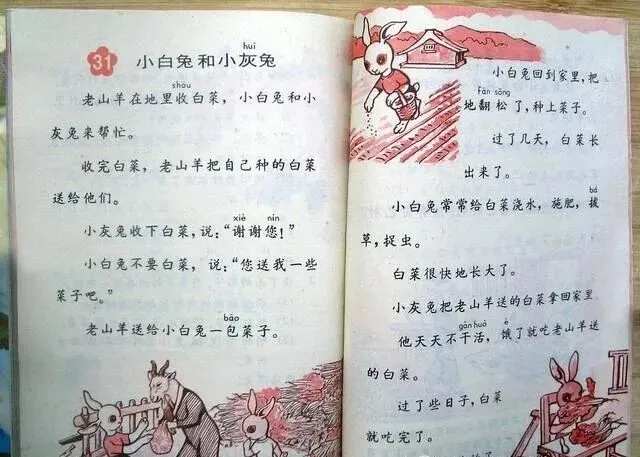 31 小白兔和小灰兔
huī
shōu
老山羊在地里收白菜，小白兔和小
灰兔来帮忙。
收完白菜，老山羊把自己种的白菜
送给他们。
xiè nín
小灰兔收下白菜，说：“谢谢您！”
小白兔不要白菜，说：“您送我一些
菜子吧。”
bāo
老山羊送给小白兔一包菜子。
小白兔回到家里，把
fān sōng
地翻松了，种上菜子。
过了几天，白菜长
出来了。
小白兔常常给白菜浇水，施肥，拔
bá
草，捉虫。
白菜很快地长大了。
小灰兔把老山羊送的白菜拿回家里
gàn huó è
他天天不干活，饿了就吃老山羊送
的白菜。
过了些日子，白菜
就吃完了。